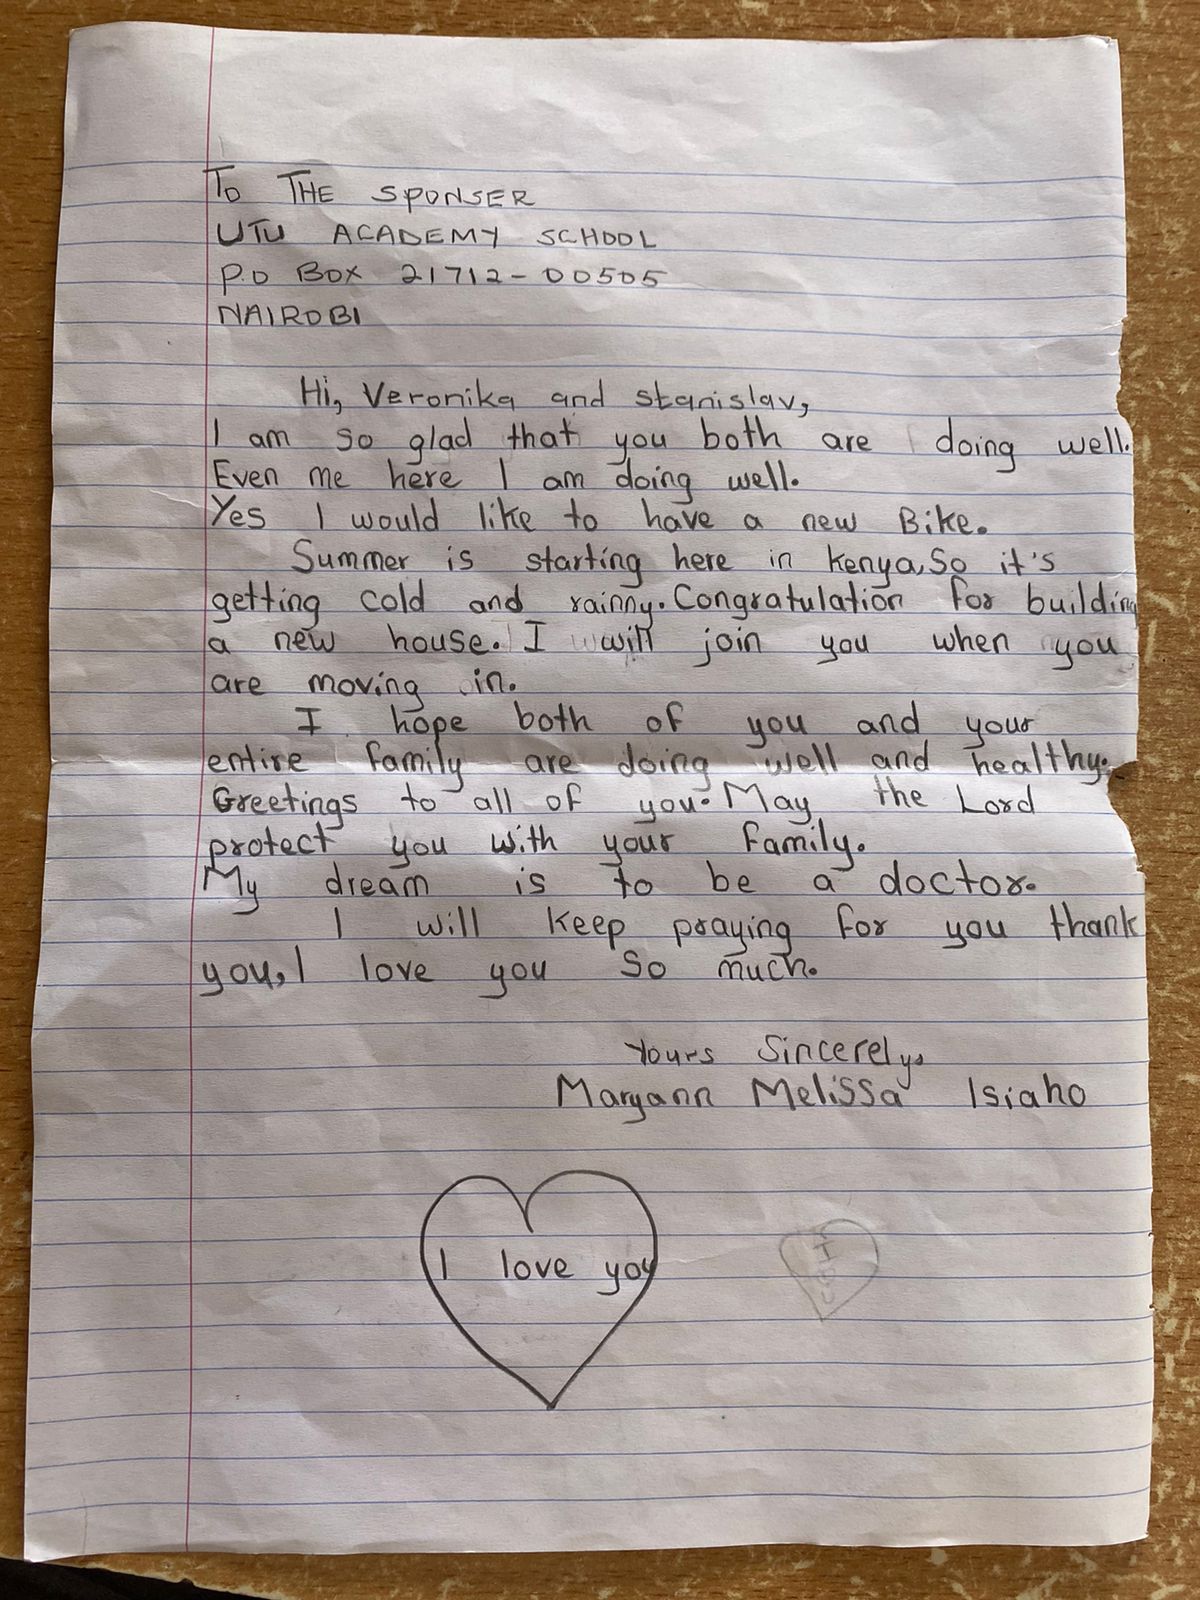 To THE SPONSER
UTU ACADEMY SCHOOL
P.O BOX 21712-00505
NAIROBI
Hi, Veronika and stanislav,
I am so glad that you both are doing well.
Even me here I am doing well.
Yes I would like to have a new Bike.
Summer is starting here in kenya, So it's
getting cold and rainny. Congratulation for building
a new house. I will join you when you
are moving in.
I hope both of you and your
entire family are doing well and healthy.
Greetings to all of you. May the Lord
protect you with your family.
My dream is to be a doctor.
I will keep praying for you thank
you, I love you so much.
Yours Sincerely,
Maryann Melissa Isiaho
I love you